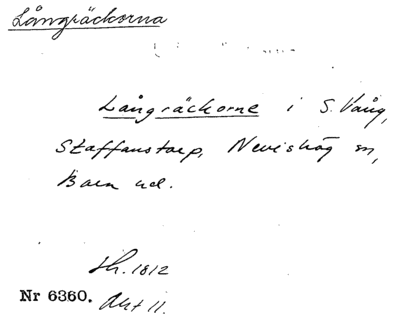 Långräckorna
Långräckorne i S. Vång,
Staffanstorp, Nevishög sn,
Bara hd.
Sh. 1812
Nr 6360. Akt 11.